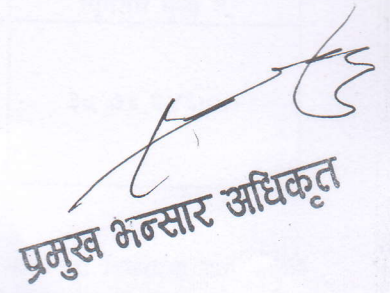 प्रमुख भन्सार अधिकृत